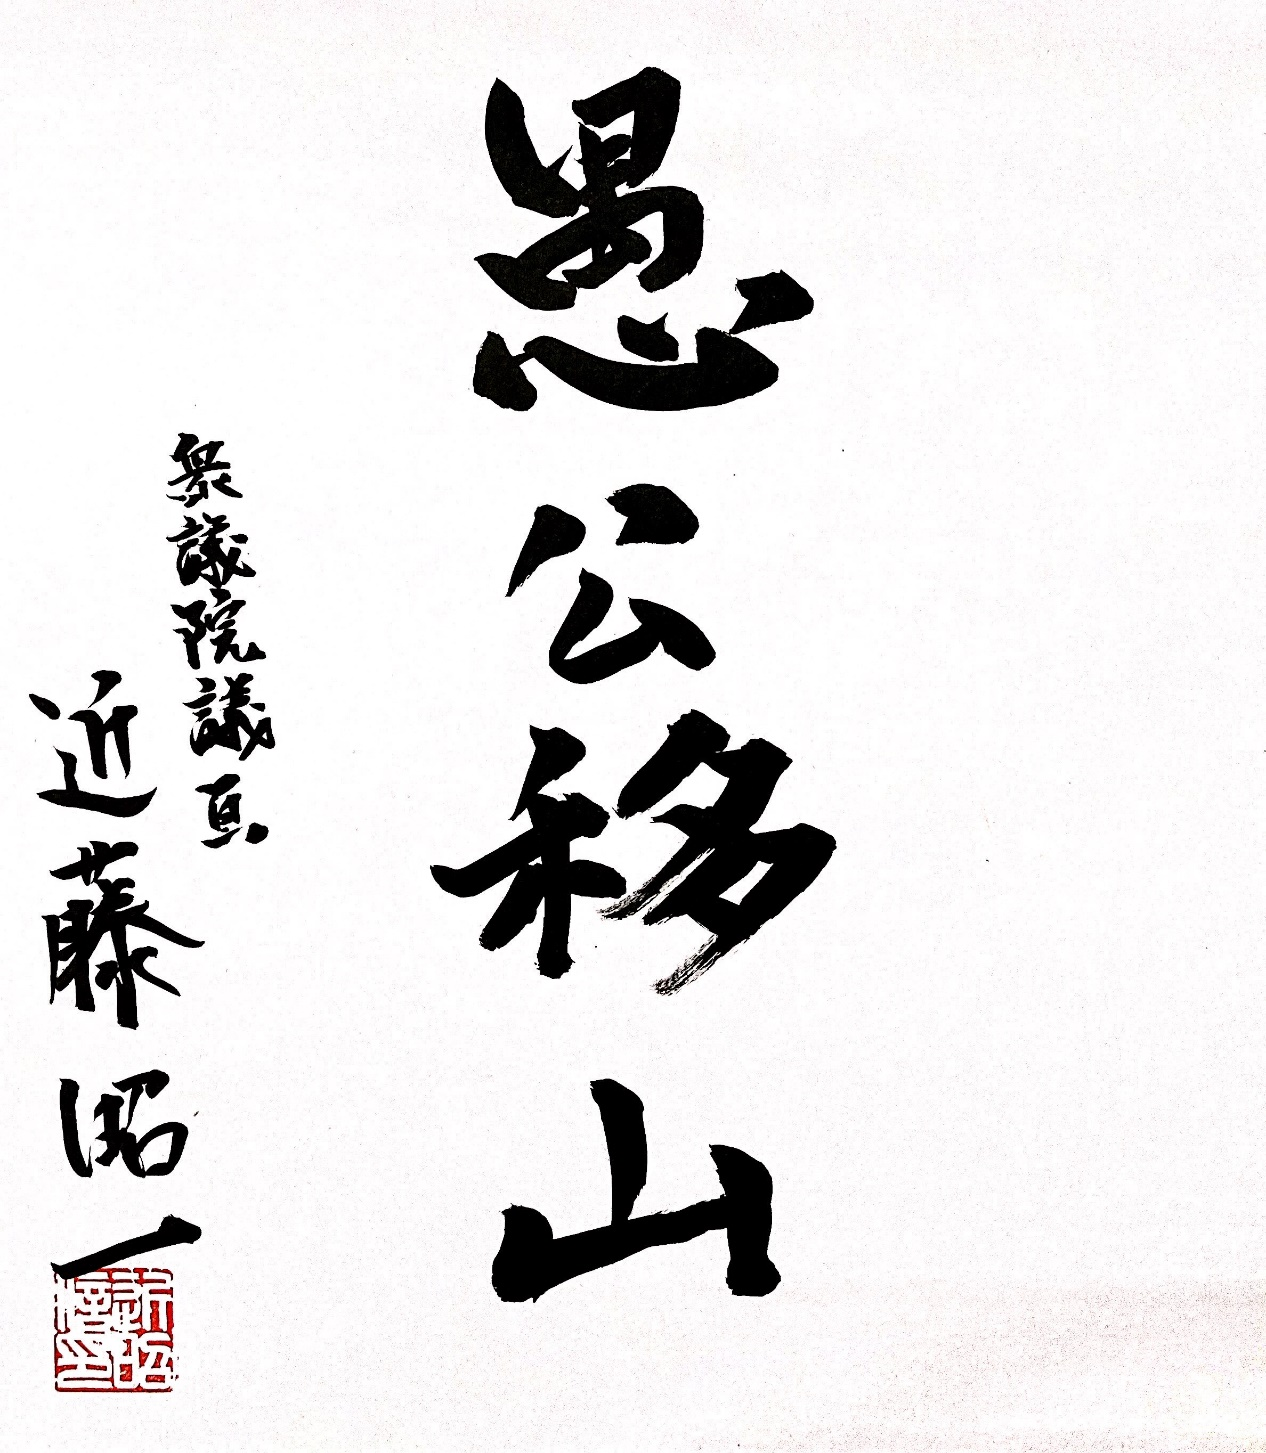 愚公移山
衆議院議員
近藤昭一